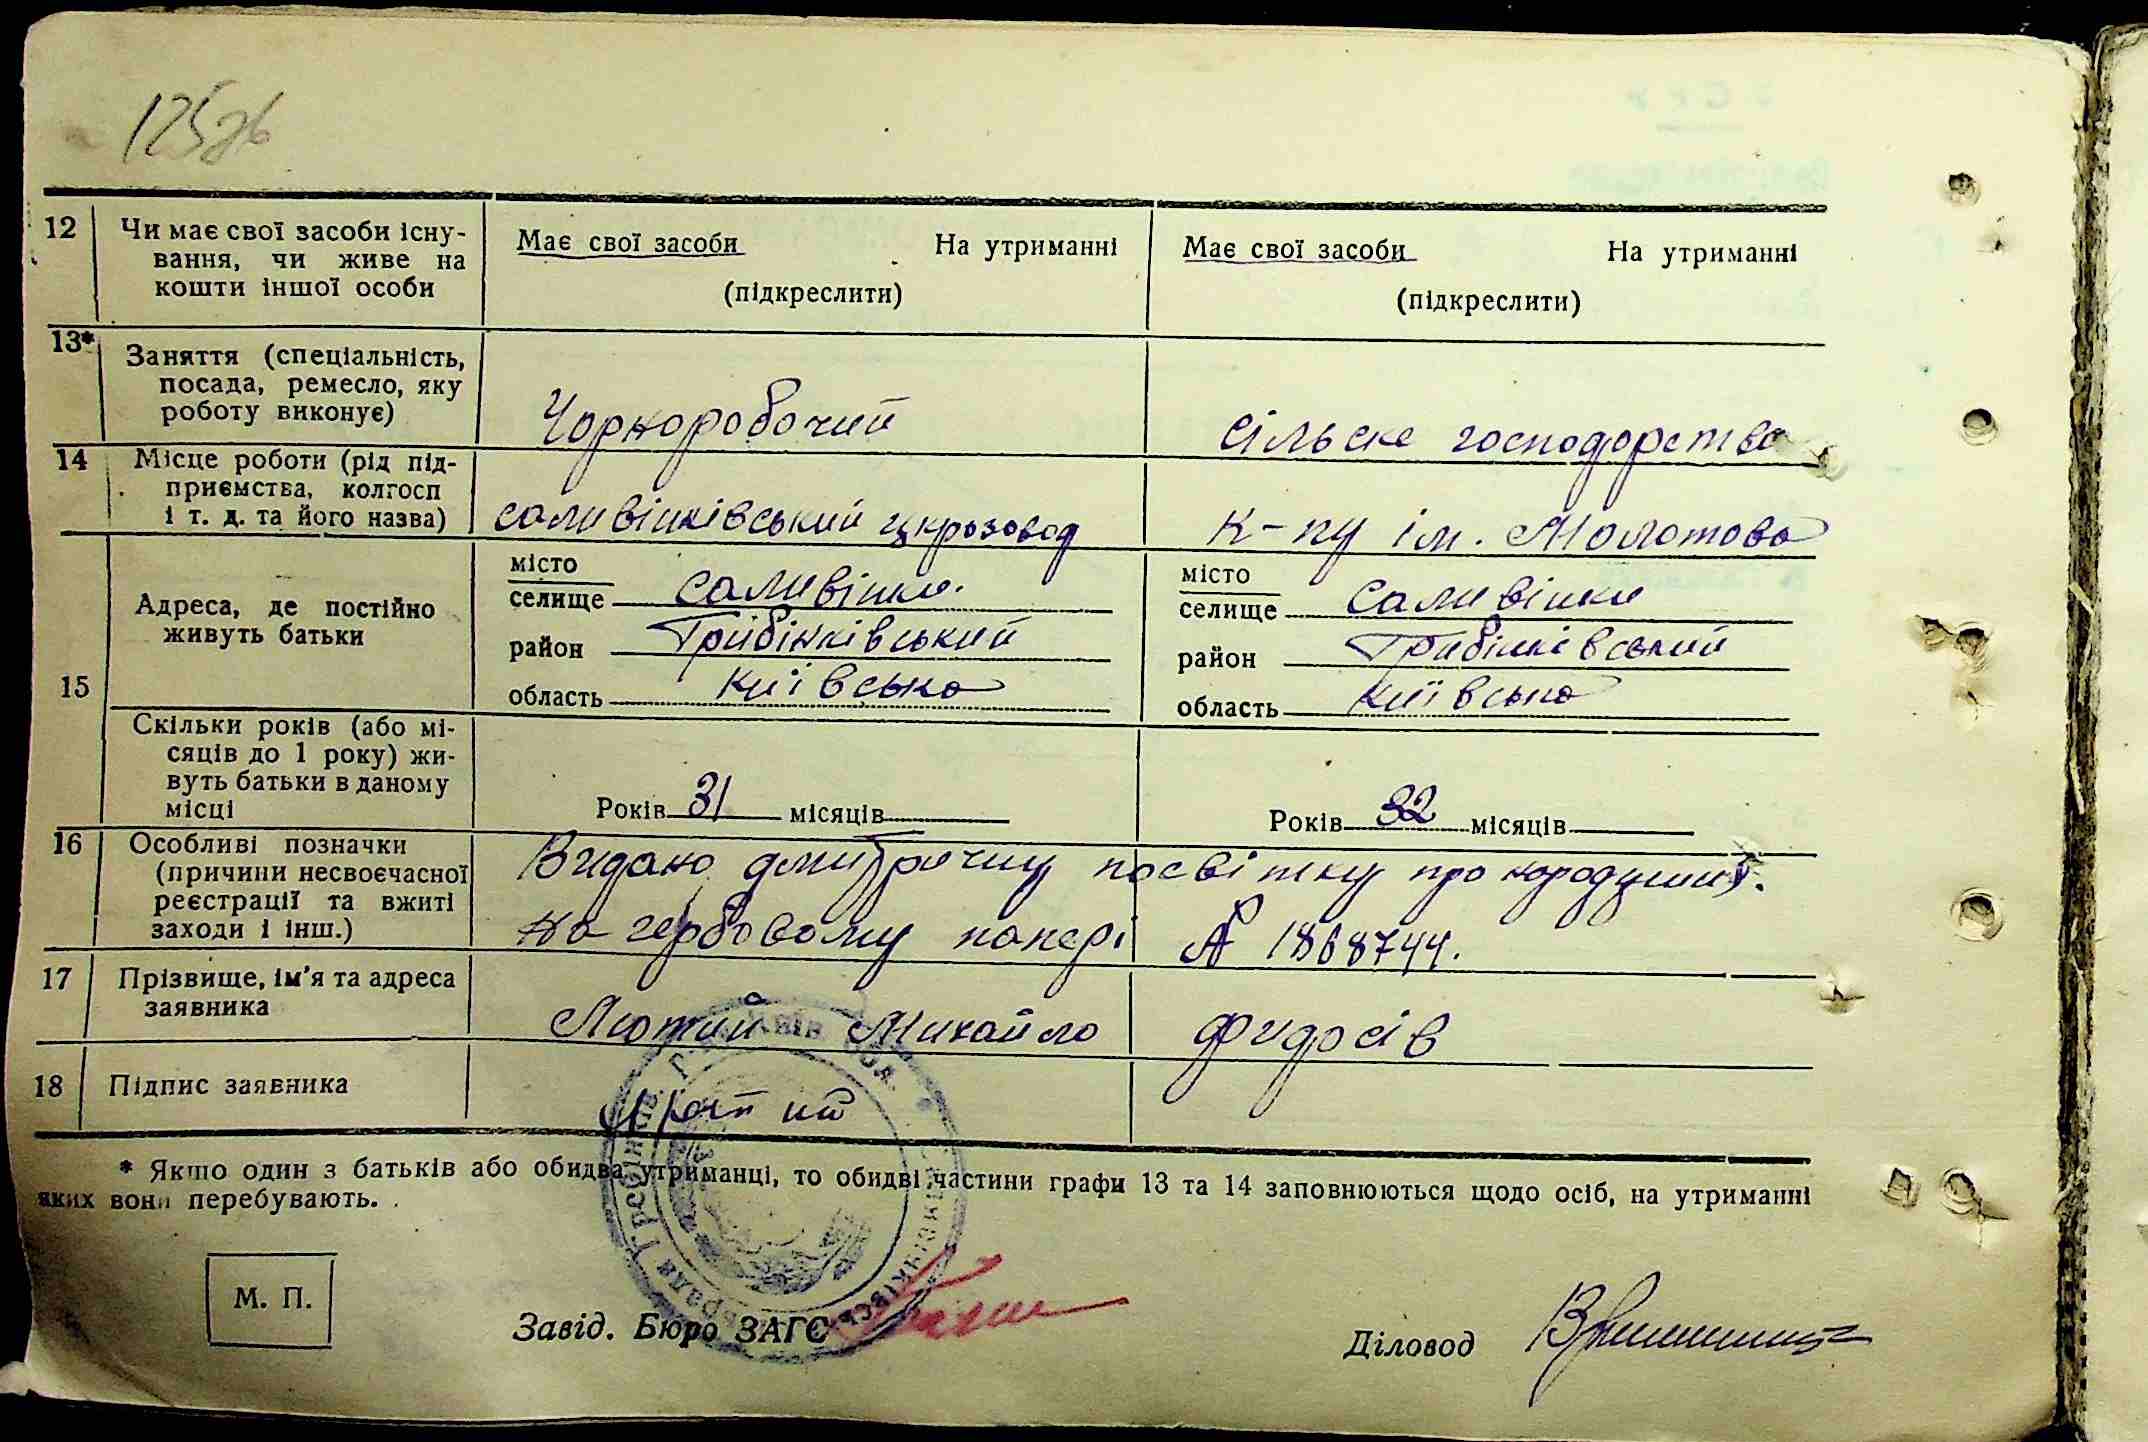 125зв
12 Чи має свої засоби існу-
вання, чи живе на
кошти іншої особи
Має свої засоби На утриманні
(підкреслити)
Має свої засоби На утриманні
(підкреслити)
13* Заняття (спеціальність,
посада, ремесло, яку
роботу виконує)
Чорноробочий
сільске господорство
14 Місце роботи (рід під-
приємства, колгосп
і т. д. та його назва)
саливінківський цкрозовод
К-пу ім. Молотова
15 Адреса, де постійно
живуть батьки
місто
селище саливінки.
район Грибінківський
область київська
місто
селище саливінки
район Грибінківський
область київська
Скільки років (або мі-
сяців до 1 року) жи-
вуть батьки в даному
місці
Років 31 місяців
Років 32 місяців
16 Особливі позначки
(причини несвоєчасної
реєстрації та вжиті
заходи і інш.)
Видано посвітку про
на гербовому папері А 1868744.
17 Прізвище, ім'я та адреса
заявника
Лютий Михайло Фидосів
18 Підпис заявника
Лютий
* Якшо один з батьків або обидва утриманці, то обидві частини графи 13 та 14 заповнюються щодо осіб, на утриманні
яких вони перебувають.
М. П.
Завід. Бюро ЗАГС
Діловод